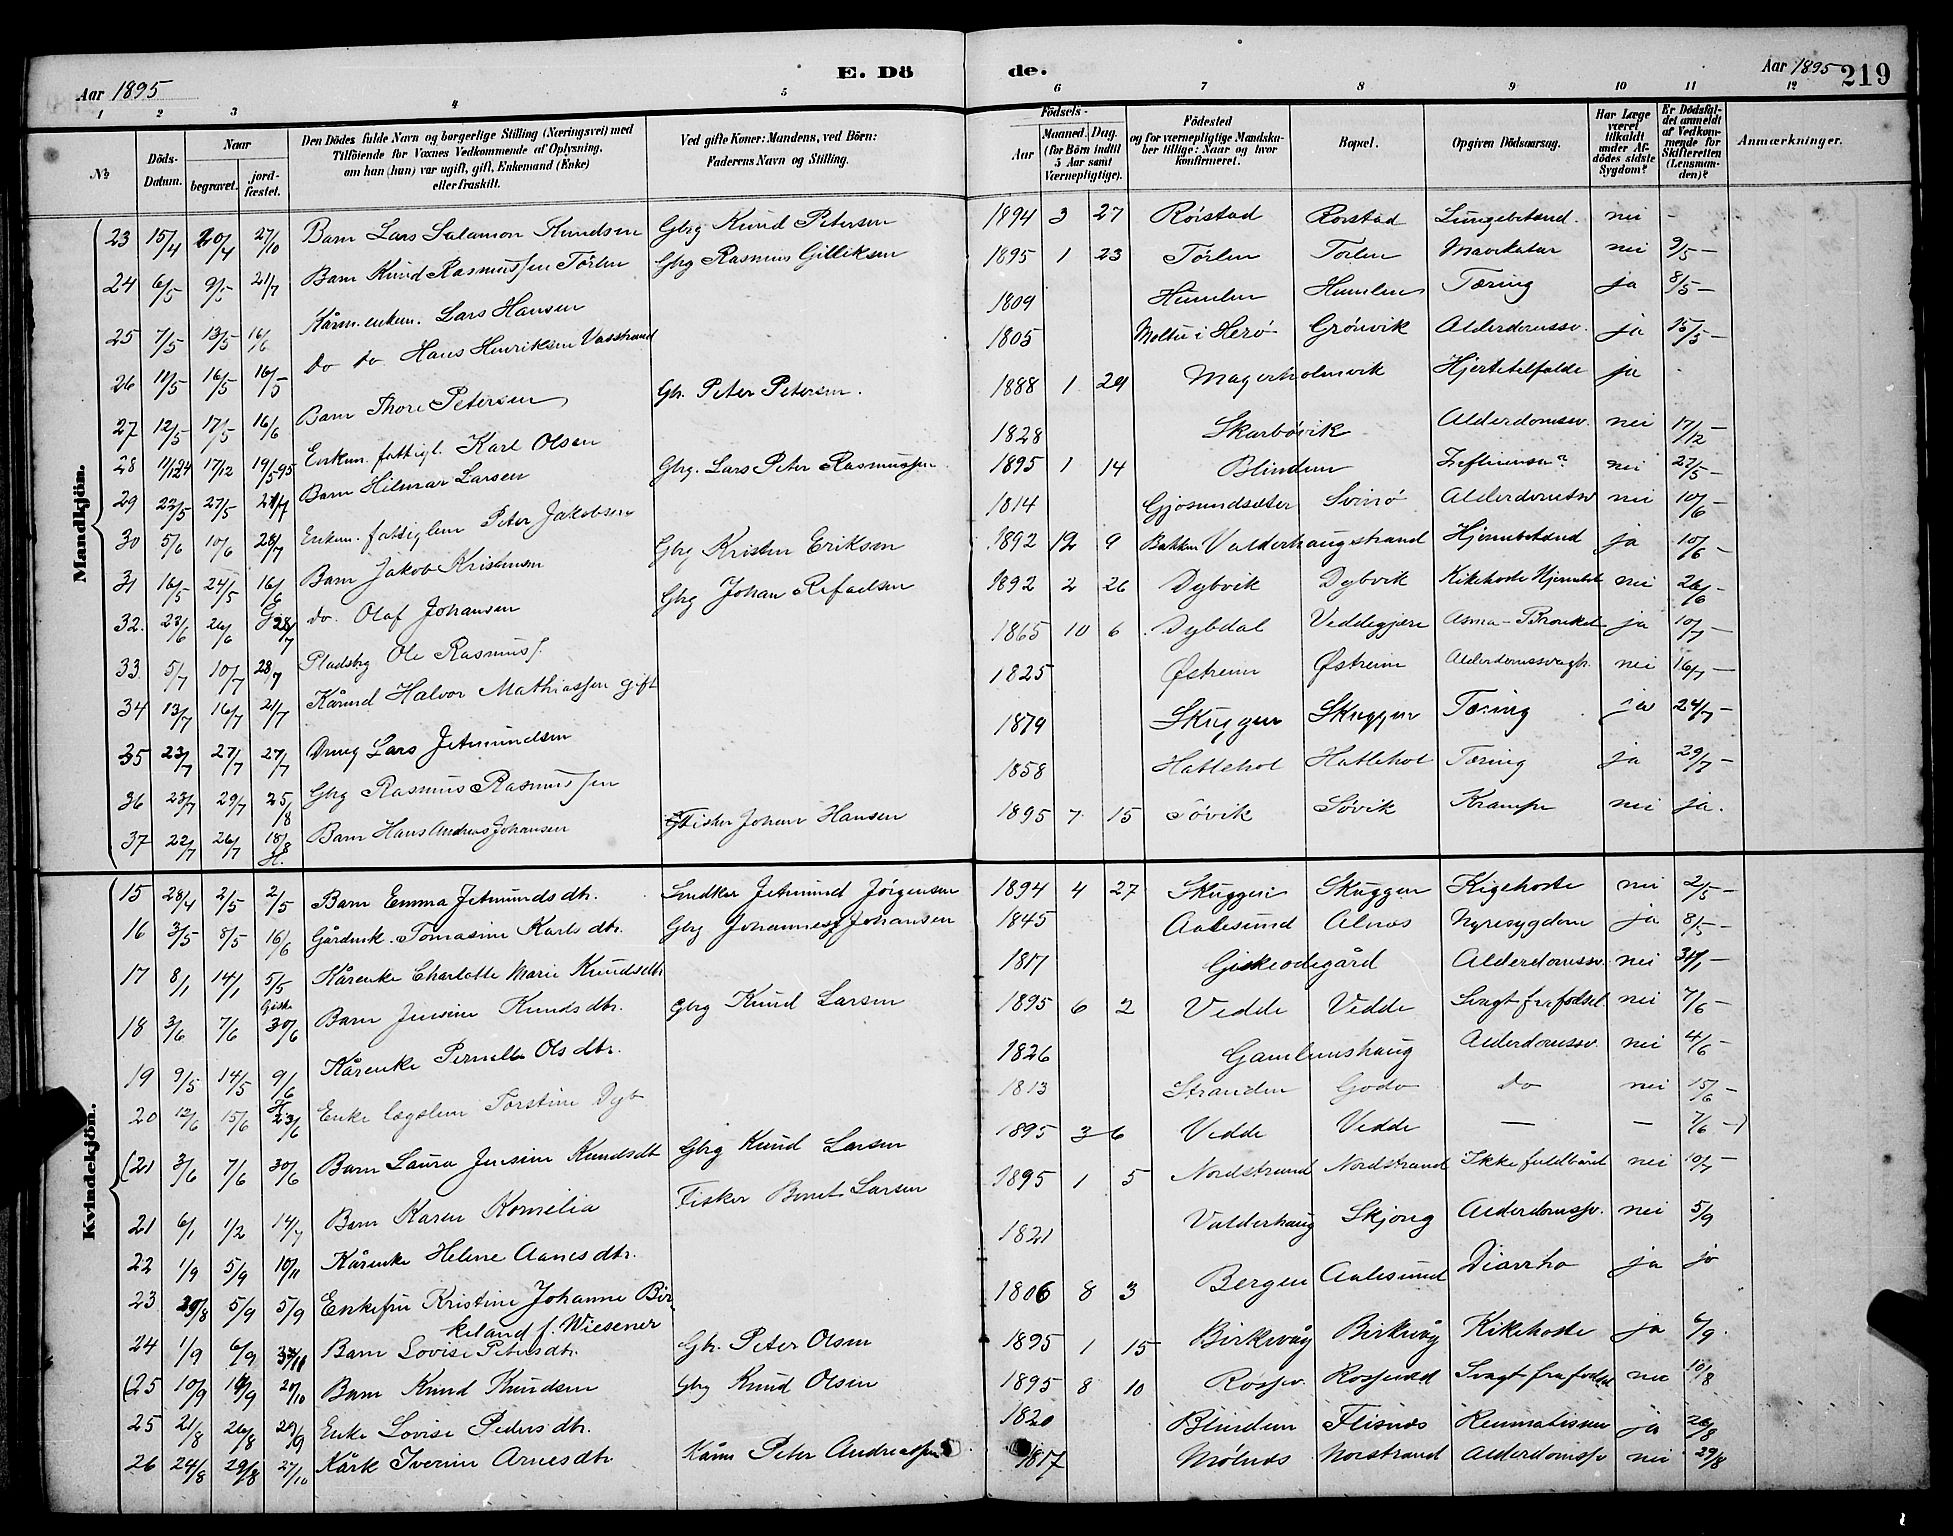 Aar 1895 E. Dö de. Aar 1895 219
1 2 3 4 5 6 7 8 9 10 11 12
No
Döds-Datum.
Naar
begravet.
jordfæstet.
Den Dödes fulde Navn og borgerlige Stilling (Næringsvei) med
Tilföiende for Voxnes Vedkommende af Oplysning,
om han (hun) var ugift, gift, Enkemand (Enke)
eller fraskilt.
Ved gifte Koner: Mandens, ved Börn:
Faderens Navn og Stilling.
Födsels-
Aar
Maaned. Dag.
(for Börn indtil
5 Aar samt
Værnepligtige).
Födested
og for værnepligtige Mandskaber tillige: Naar og hvor
konfirmeret.
Bopæl.
Opgiven Dödsaarsag.
Har Læge
været
tilkaldt
under Afdödes sidste
Sygdom?
Er Dödsfaldet anmeldt
af Vedkommende for
Skifteretten
(Lensmanden)?
Anmærkninger.
Mandkjön.
23 15/4 20/4 27/10 Barn Lars Salamon Knudsen Gbrg Knud Petersen 1894 3 27 Röistad Rorstad Lungebetænd. nei -
24 6/5 9/5 21/7 Barn Knud Rasmussen Törlen Gbrg Rasmus Gilliksen 1895 1 23 Törlen Torlen Mavekatar nei 9/5 -
25 7/5 13/5 16/6 Kårm. enkem. Lars Hansen 1809 Humlen Humlen Tæring ja 8/5 -
26 11/5 16/5 16/5 do do Hans Henriksen Vasstrand 1805 Moltu i Herö Grönvik Alderdomssv. ja 15/5 -
27 12/5 17/5 16/6 Barn Thore Petersen Gbr. Peter Petersen. 1888 1 29 Magerholmvik Hjertetilfælde ja
28 11/12 94 17/12 19/5 95 Enkem. fattigl. Karl Olsen 1828 Skarbövik Alderdomsv. nei 17/12 -
29 22/5 27/5 21/7 Barn Hilmar Larsen Gbrg. Lars Peter Rasmussen 1895 1 14 Blindem nei 27/5 -
30 5/6 10/6 28/7 Enkem. fattiglem Peter Jakobsen 1814 Gjösundsæter Svinö Alderdomssv nei 10/6 -
31 16/5 24/5 16/6 Barn Jakob Kristensen Gbrg Kristen Eriksen 1892 12 9 Bakken Valderhaugstrand Hjernebetænd ja 10/6 -
32. 23/6 26/6 G 28/7 do. Olaf Johansen Gbrg Johan Refaelsen 1892 2 26 Dybvik Dybvik Kikehoste Hjernebet nei 26/6 -
33 5/7 10/7 28/7 Pladsbrg Ole Rasmuss. 1865 10 6 Dybdal Veddegjære Asma-Bronket ja 10/7 -
34 13/7 16/7 21/7 Kårmd Halvor Mathiassen gift 1825 Østreim Østreim Alderdomssvagh. nei 16/7 -
35 23/7 27/7 27/7 Dreng Lars Jetmundsen 1879 Skuggen Skuggen Tæring ja 24/7 -
36 23/7 29/7 25/8 Gbrg Rasmus Rasmussen 1858 Hatlehol Hatlehol Tæring ja 29/7 -
37 22/7 26/7 18/8 H. Barn Hans Andreas Johansen Fisker Johan Hansen 1895 7 15 Sövik Sövik Krampe nei ja.
Kvindekjön.
15 28/4 2/5 2/5 Barn Emma Jetmundsdtr. Snedker Jetmund Jörgensen 1894 4 27 Skuggen Skuggen Kigehoste nei 2/5 -
16 3/5 8/5 16/6 Gårdmk. Tomasine Karlsdtr. Gbrg Johannes Johansen 1845 Aalesund Alnæs Nyresygdom ja 8/5 -
17 8/1 14/1 5/5 Kårenke Charlotte Marie Knudsdtr 1817 Giskeödegård Alderdomssv. nei
18 3/6 7/6 Giske 30/6 Barn Jensine Knudsdtr. Gbrg Knud Larsen 1895 6 2 Vedde Vedde Svagt fra födsel nei 7/6 -
19 9/5 14/5 9/6 Kårenke Pernille Olsdtr. 1826 Gamlemshaug Alderdomssv. nei 4/6 -
20 12/6 15/6 23/6 Enke lægslem Torstine Dyb 1813 Stranden Godö Do nei 15/6 -
(21 3/6 7/6 30/6 Barn Laura Jensine Knudsdtr Gbrg Knud Larsen 1895 3-6 Vedde Vedde - - 7/6 -)
21 6/1 1/2 14/7 Barn Karen Kornelia Fisker Bernt Larsen 1895 1 5 Nordstrand Nordstrand Ikke fuldbåret nei 10/7 -
22 1/9 5/9 10/11 Kårenke Helene Aanesdtr. 1821 Valderhaug Skjong Alderdomssv. nei 5/9
23 29/8 5/9 5/9 Enkefru Kristine Johanne Bir-
keland f. Wiesener 1806 8 3 Bergen Aalesund Diarrho ja ja
24 1/9 6/9 Barn Lovise Petersdtr. Gbr. Peter Olsen 1895 1 15 Birkevåg Birkevåg Kikehoste ja 6/9.
(25 10/9 14/9 20/10 Barn Knud Knudsen Gbrg Knud Olsen 1895 8 10 Svagt fra födsel nei 10/8
25 21/8 26/8 29/9 Enke Lovise Pedersdtr. 1820 Blindem Flisnæs Reumatisme ja 26/8
26 24/8 29/8 27/10 Kårk Iverine Arnesdtr Kårm Peter Andreassen 1817 Molnæs Norstrand Alderdomssv nei 29/8